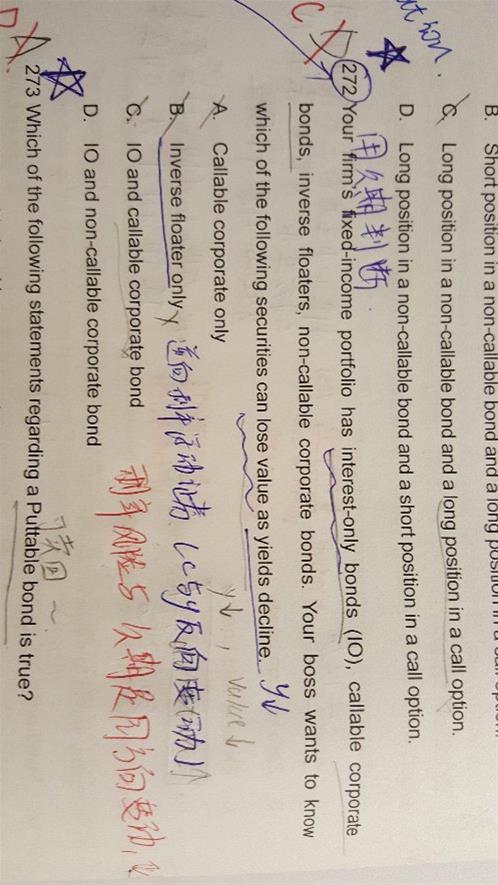 B. Short position in a non-callable bond and a long position in a call option.
C. Long position in a non-callable bond and a long position in a call option.
D. Long position in a non-callable bond and a short position in a call option.
用久期判断.
272 Your firm's fixed-income portfolio has interest-only bonds (IO), callable corporate
bonds, inverse floaters, non-callable corporate bonds. Your boss wants to know
which of the following securities can lose value as yields decline. y↓
A. Callable corporate only
y↓, value↓
B. Inverse floater only × 逆向利率浮动证券
C. IO and callable corporate bond
D. IO and non-callable corporate bond
利率风险与久期
可卖回
273 Which of the following statements regarding a Puttable bond is true?